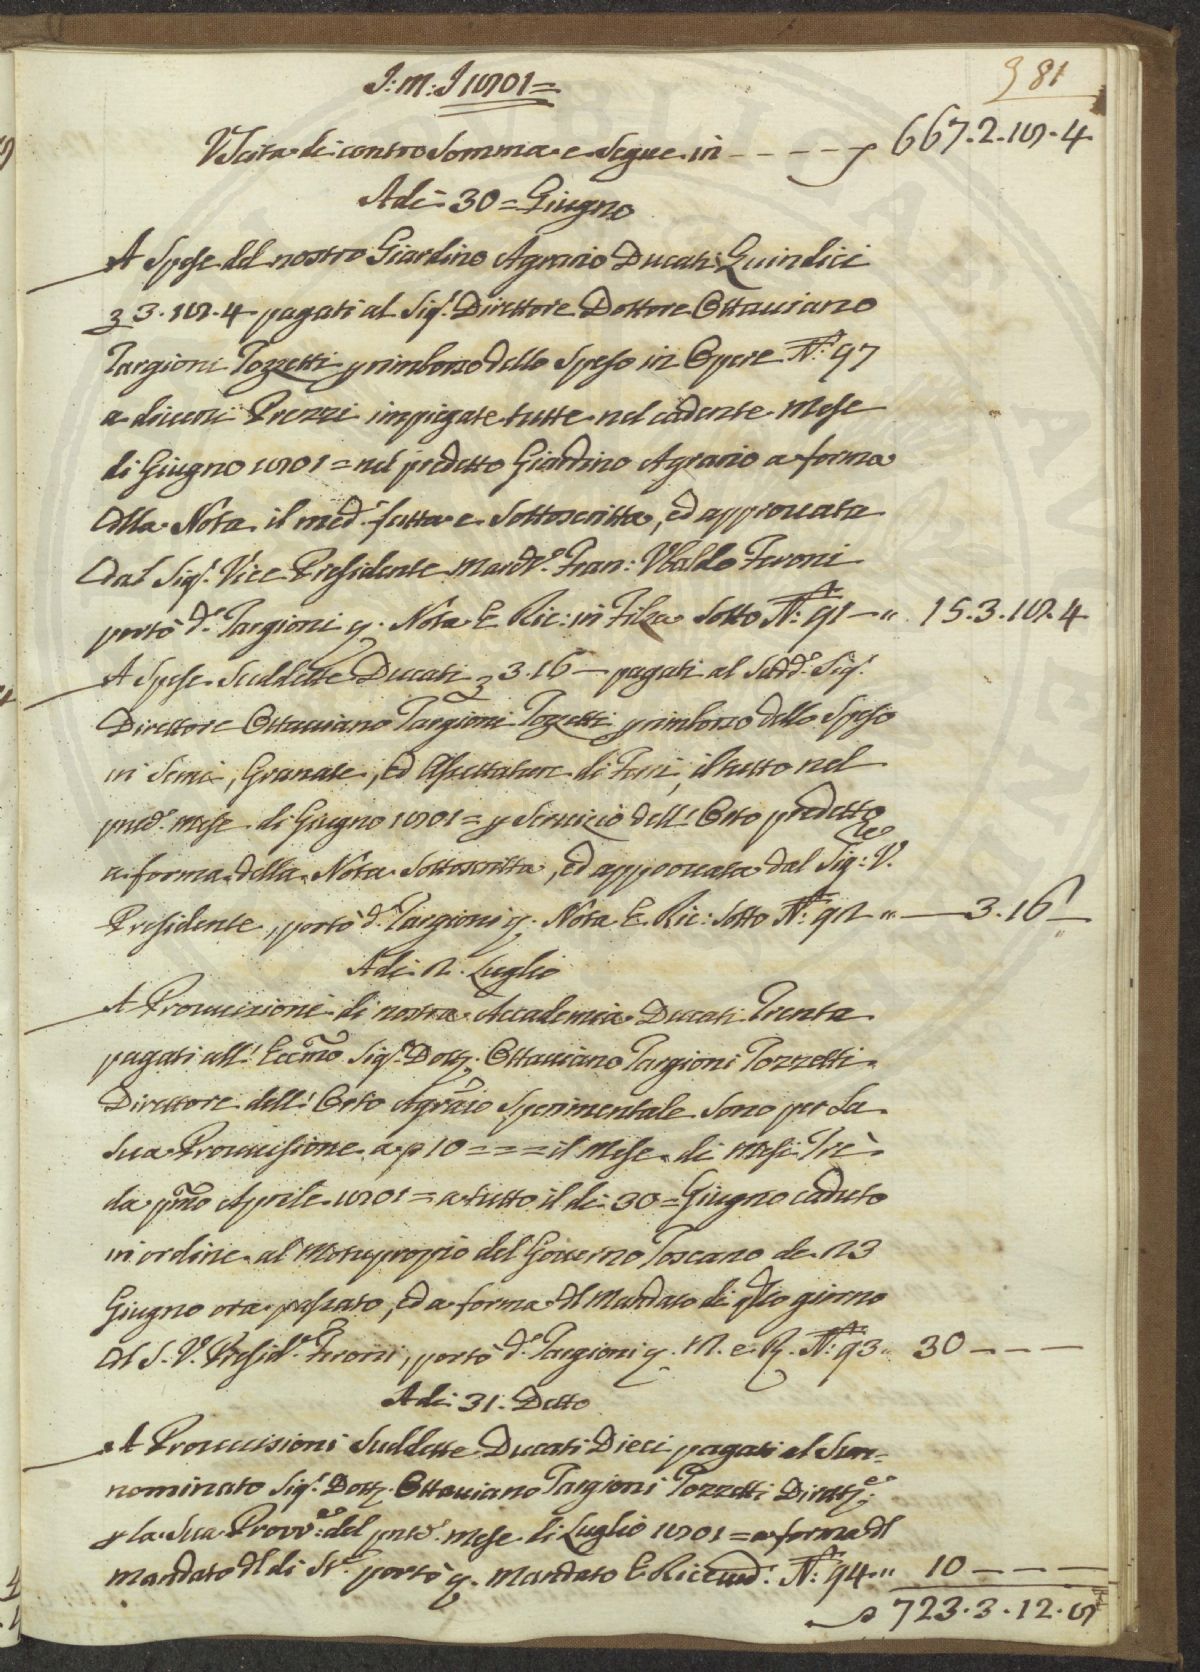 381
J: M: J 1801 =
Uscita di contro Somma e Segue in - - - - 667.2.18.4
Adi 30 = Giugno
A Spese del nostro Giardino Agrario Ducati Quindici
3.18.4 pagati al Sigr. Direttore Dottore Ottaviano
Targioni Tozzetti p rimborso delle Spese in Opere N: 97
a diversi Prezzi impiegate tutte nel cadente Mese
di Giugno 1801 = nel predetto Giardino Agrario a forma
della Nota il med. fatta e Sottoscritta, ed approvata
dal Sigr. Vice Presidente March. Fran: Ubaldo Feroni
portò d. Targioni p. Nota E Ric: in Filza Sotto N: 91 - " 15.3.18.4
A Spese Suddette Ducati 3.16 — pagati al Sudd. Sigr.
Direttore Ottaviano Targioni Tozzetti p rimborso delle Spese
in Semi, Granate, ed Assettature di Ferri, il tutto nel
pred. mese di Giugno 1801 = p Servizio dell' Orto predetto
a forma della Nota Sottoscritta, ed approvata dal Sig: V.
Presidente, portò d. Targioni p. Nota E Ric: Sotto N: 92 " — 3.16 —
Adi 2. Luglio
A Provvisioni di nostra Accademia Ducati Trenta
pagati all' Eccmo Sigr. Dott. Ottaviano Targioni Tozzetti
Direttore dell' Orto Agrario Sperimentale Sono per La
Sua Provvisione a p 10 = = = il Mese di Mesi Trè
da pmo Aprile 1801 = a tutto il di 30 = Giugno caduto
in ordine al Motuproprio del Governo Toscano de 23
Giugno ora passato, ed a forma dl Mandato di qsto giorno
dl S. V. Presid. Feroni, portò d. Targioni p. M. e R. N: 93 " 30 - - -
Adi 31. Detto
A Provvisioni Suddette Ducati Dieci pagati al Sun-
nominato Sigr. Dott. Ottaviano Targioni Tozzetti Dirett.
p la Sua Provv: del pnte mese di Luglio 1801 = a forma dl
Mandato dl di portò p. Mandato E Ric: N: 94 " 10 - - -
723.3.12.8